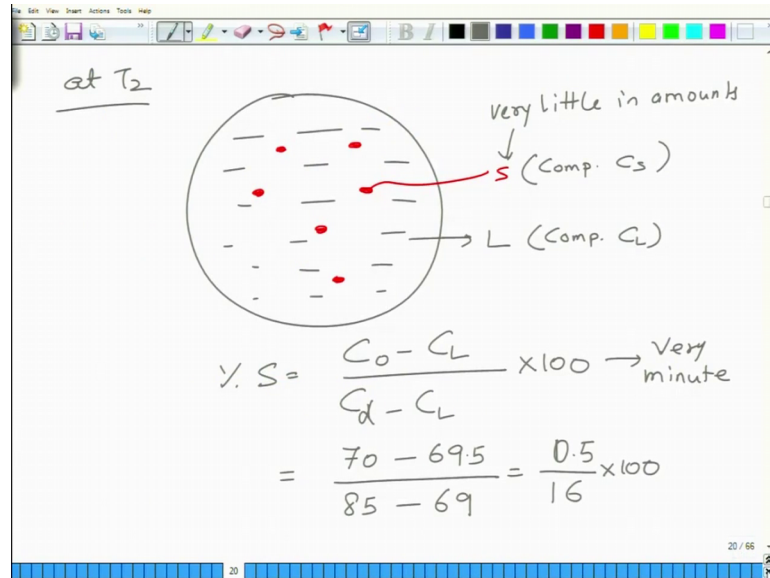 File Edit View Insert Actions Tools Help
B I
at T2
very little in amounts
S (Comp. Cs)
L (Comp. CL)
% S = Co - CL / Cα - CL × 100 → Very minute
= 70 - 69.5 / 85 - 69 = 0.5 / 16 × 100
20 / 66
20